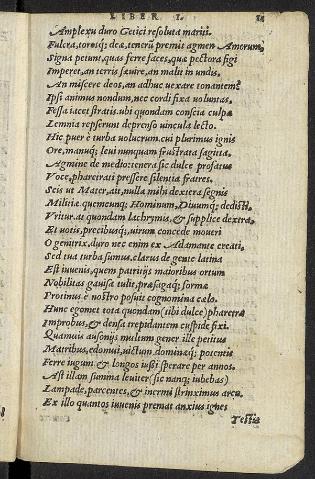 LIBER I. 14
Amplexu duro Getici resoluta mariti.
Fulcra, torosq; deæ, tenerũ premit agmen Amorum,
Signa petunt, quas ferre faces, quæ pectora figi
Imperet, an terris sæuire, an malit in undis,
An miscere deos, an adhuc uexare tonantem?
Ipsi animus nondum, nec cordi fixa uoluntas.
Fessa iacet stratis. ubi quondam conscia culpæ
Lemnia repserunt deprenso uincula lecto.
Hic puer è turba uolucrum. cui plurimus ignis
Ore, manuq; leui nunquam frustrata sagitta.
Agmine de medio: tenera sic dulce profatus
Voce, pharetrati pressere silentia fratres.
Scis ut Mater, ait, nulla mihi dextera segnis
Militiæ. quemcunq; Hominum, Diuumq; dedisti,
Vritur. at quondam lachrymis, & supplice dextra,
Et uotis, precibusq; uirum concede moueri
O genitrix. duro nec enim ex Adamante creati,
Sed tua turba sumus. clarus de gente latina
Est iuuenis, quem patrijs maioribus ortum
Nobilitas gauisa tulit, præsagaq; formæ
Protinus è nostro posuit cognomina cælo.
Hunc egomet tota quondam (tibi dulce) pharetra
Improbus, & densa trepidantem cuspide fixi.
Quamuis ausonijs multum gener ille petitus
Matribus, edomui, uictum dominæq; potentis
Ferre iugum & longos iussi sperare per annos.
Ast illam summa leuiter (sic nanq; iubebas)
Lampade, parcentes, & inermi strinximus arcu.
Ex illo quantos iuuenis premat anxius ignes
Testis